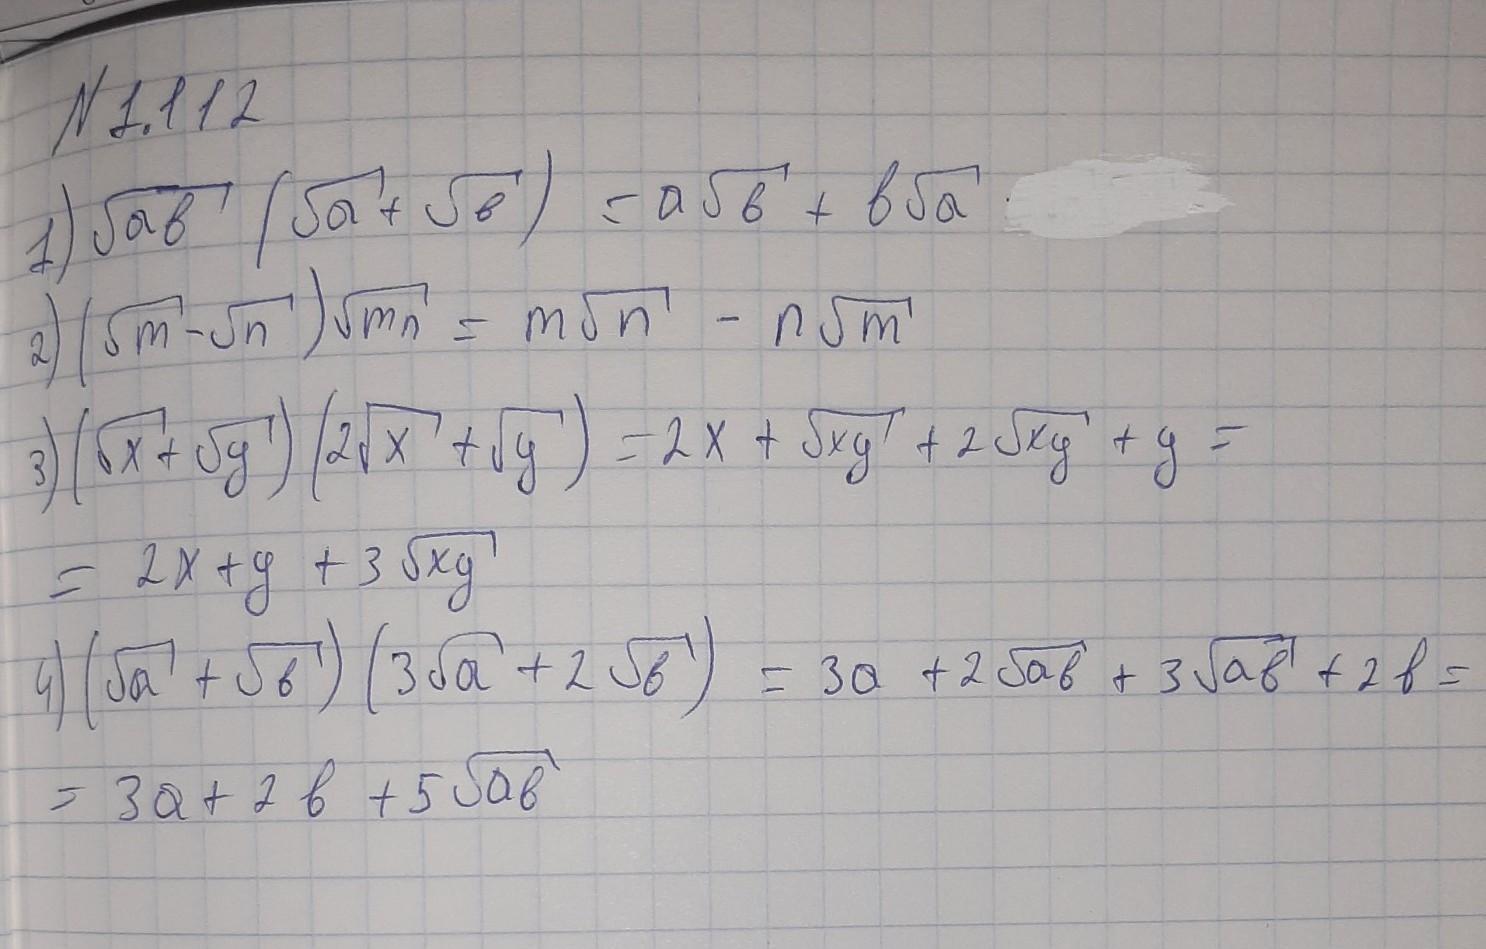 N 1.112
1) √ab (√a + √b) = a√b + b√a
2) (√m - √n)√mn = m√n - n√m
3) (√x + √y)(2√x + √y) = 2x + √xy + 2√xy + y =
= 2x + y + 3√xy
4) (√a + √b)(3√a + 2√b) = 3a + 2√ab + 3√ab + 2b =
= 3a + 2b + 5√ab